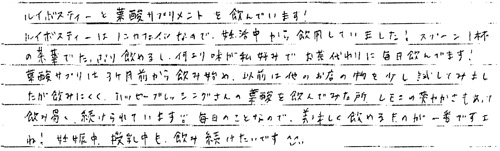 ルイボスティーと葉酸サプリメントを飲んでいます!
ルイボスティーはノンカフェインなので、妊活中から飲用していました!スプーン1杯
の茶葉でたっぷり飲めるし、何より味が私好みでお茶代わりに毎日飲んでます!
葉酸サプリは3ヶ月前から飲み始め、以前は他のお店の物を少し試してみまし
たが飲みにくく、ハッピーブレッシングさんの葉酸を飲んでみた所レモンの爽やかさもあって
飲み易く、続けられています♡毎日のことなので、美味しく飲めるものが一番ですよ
ね!妊娠中、授乳中も飲み続けたいです